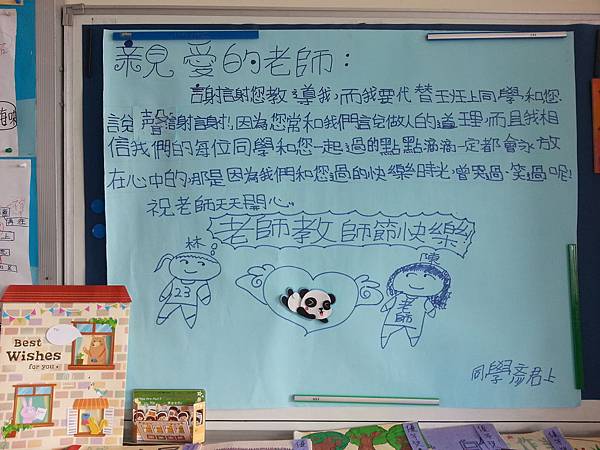 親愛的老師：
謝謝您教導我，而我要代替全班上同學和您
說聲謝謝！因為您常和我們言說做人的道理，而且我相
信我們的每位同學和您一起過的點點滴滴一定都會永放
在心中的，那是因為我們和您過的快樂時光，曾哭過、笑過呢！
祝老師天天開心。
老師教師節快樂
林
陳
23
老師
同學彥君上
Best
Wishes
for you